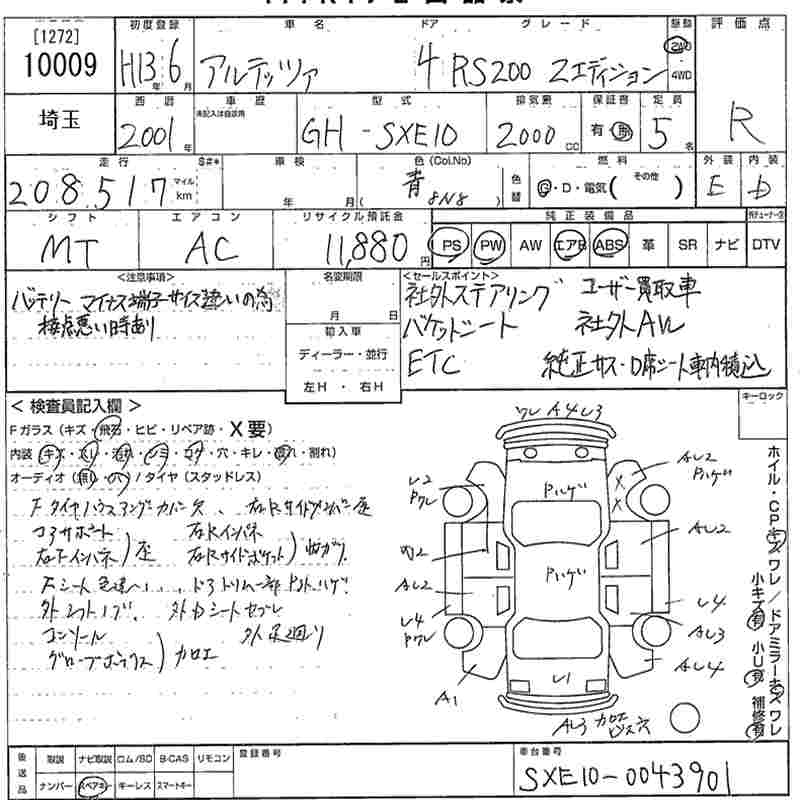 [1272]
10009
埼玉
初度登録
H13年 6月
車名
アルテッツァ
ドア
4
グレード
RS200 Zエディション
駆動
2WD
4WD
評価点
R
西暦
2001年
車歴
未記入は自家用
型式
GH-SXE10
排気量
2000cc
保証書
有・無
定員
5名
走行
208,517
マイル
km
S#*
車検
年 月
色(Col.No)
青
( 8N8 )
色替
燃料
G・D・電気( その他 )
外装
E
内装
D
シフト
MT
エアコン
AC
リサイクル預託金
11,880円
純正装備品
PS PW AW エアB ABS 革 SR ナビ DTV
<注意事項>
バッテリー マイナス端子サイズ違いの為
接点悪い時あり
名変期限
月 日
輸入車
ディーラー・並行
左H ・ 右H
<セールスポイント>
社外ステアリング ユーザー買取車
バケットシート 社外AW
ETC 純正サス・D席シート車内積込
キーロック
<検査員記入欄>
Fガラス(キズ・飛石・ヒビ・リペア跡・X要)
内装(キズ・スレ・汚れ・シミ・コゲ・穴・キレ・割れ)
オーディオ(無し・ハ)/タイヤ(スタッドレス)
Fタイヤハウスインナーカバー欠、右Rサイドメンバー座
コアサポート
右Fインパネ)座
右Rインパネ
右Rサイドポケット)曲がり
Fシート色違い、ドアトリム一部Pハゲ
外シフトノブ、外
コンソール
グローブボックス)カロエ
外足廻り
ワレ A4 U3
U2
Pワレ
AU2
Pハゲ
Pハゲ
X
X
AU2
Pハゲ
AU2
U4
Pワレ
U4
AU3
AU4
A1
U1
AU3 カロエ
ビス穴
ホイル・CPキズ ワレ/ドアミラーキズ ワレ
小キズ有 小U有 補修有
後送品
取説 ナビ取説 ロム/SD B-CAS リモコン
ナンバー スペアキー キーレス スマートキー
登録番号
車台番号
SXE10-0043901